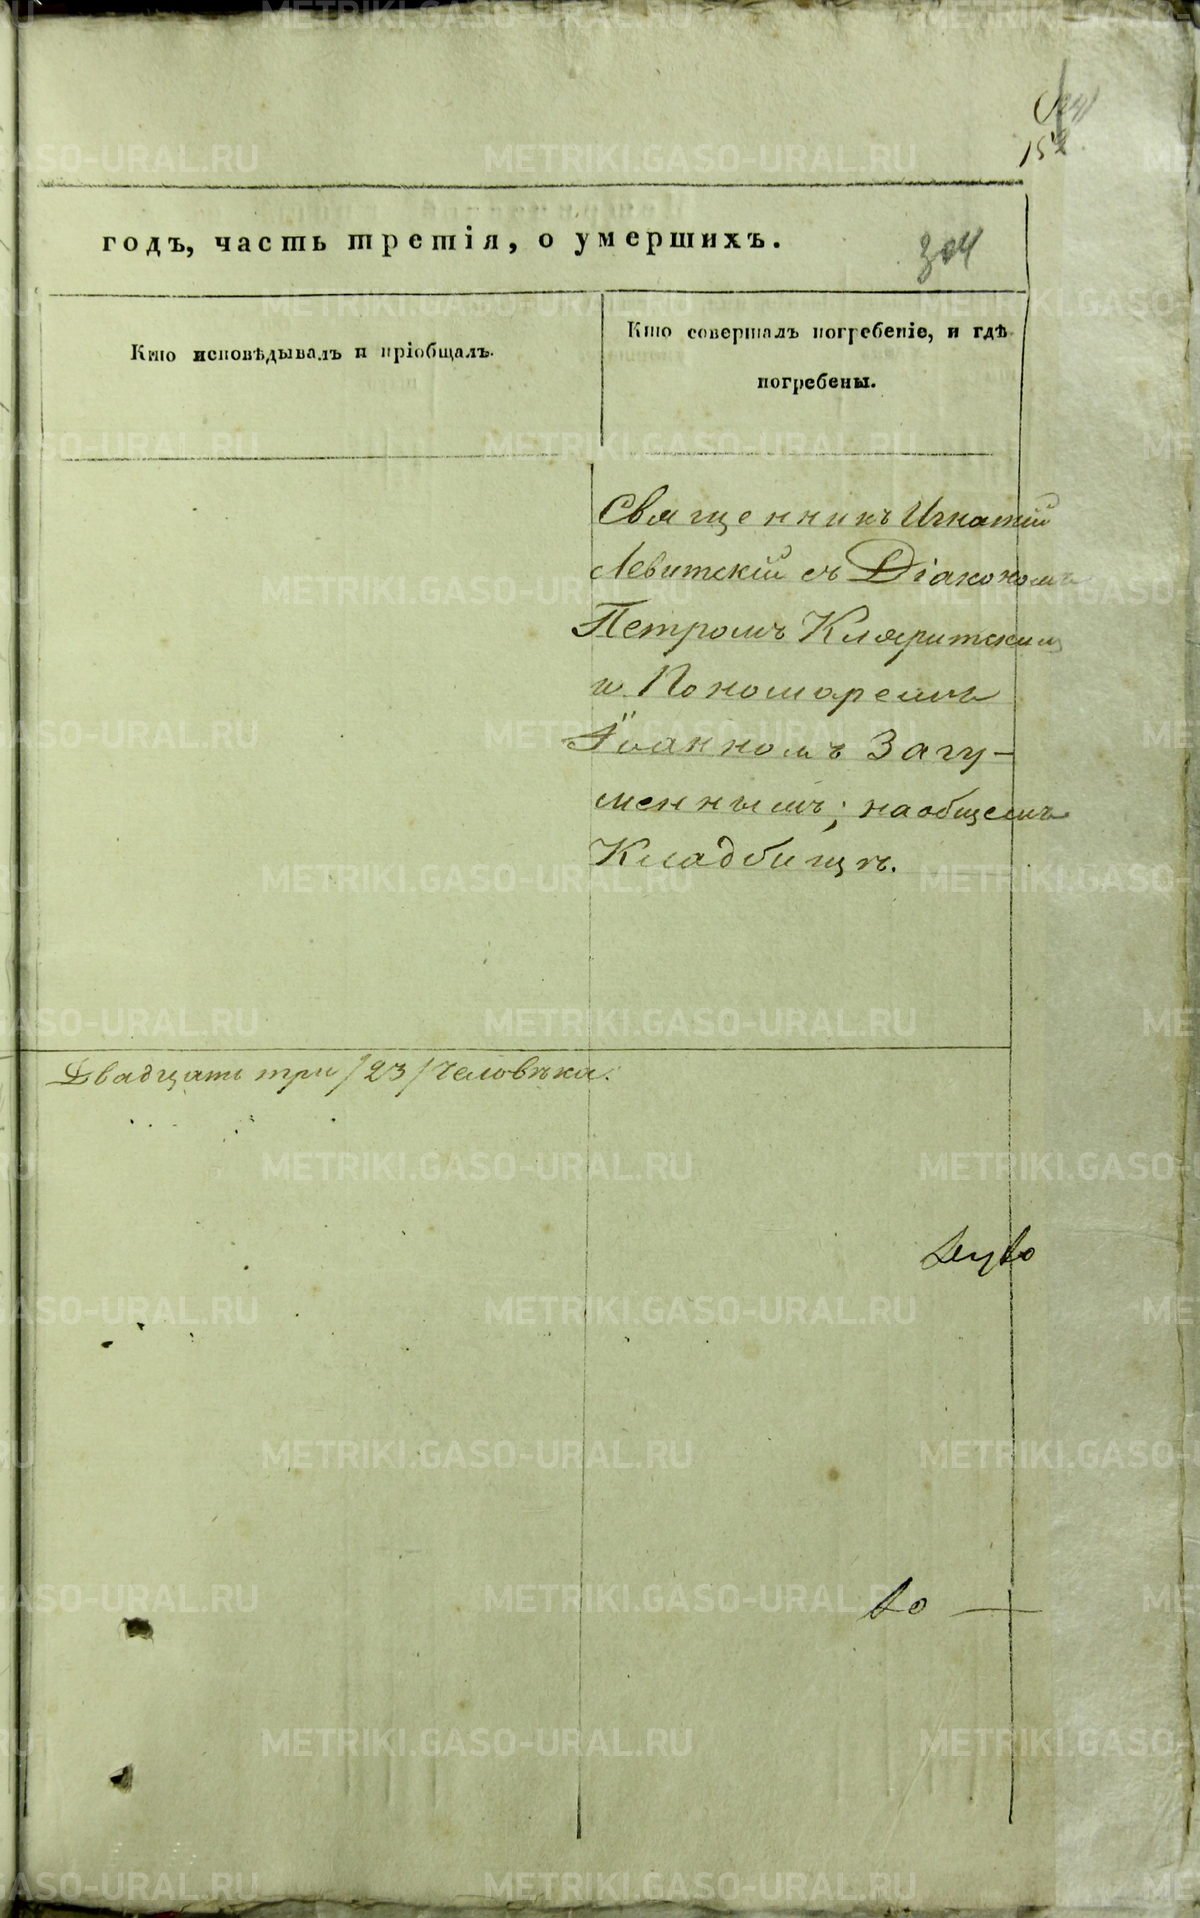 152
годъ, часть третія, о умершихъ.
304
Кто исповѣдывалъ и пріобщалъ.
Кто совершалъ погребеніе, и гдѣ
погребены.
Священникъ Игнатій
Левитскій съ Діакономъ
Петромъ Кляритскимъ
и Пономаремъ
Іоанномъ Загу-
меннымъ; на общемъ
Кладбищѣ.
Двадцать три /23/ Человѣка.
METRIKI.GASO-URAL.RU